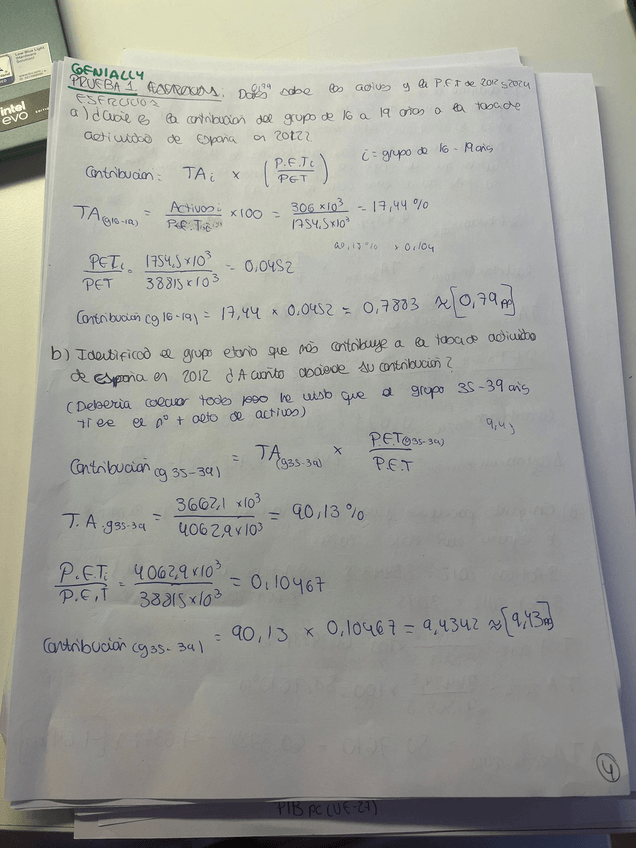 GENIALLY
PRUEBA 1 Datos sobre los activos y la P.E.T de 2012 y 2024
EJERCICIO 2
a) ¿Cuál es la contribución del grupo de 16 a 19 años a la tasa de
actividad de España en 2012?
Contribución: TAi × (P.E.Ti / PET) i = grupo de 16 - 19 años
TA(g16-19) = Activosi / P.E.Ti × 100 = 306 × 10³ / 1754,5 × 10³ = 17,44 %
90,13 % × 0,104
PETi / PET = 1754,5 × 10³ / 38815 × 10³ = 0,0452
Contribución (g 16-19) = 17,44 × 0,0452 = 0,7883 ≈ [0,79 pp]
b) Identificad el grupo etario que más contribuye a la tasa de actividad
de España en 2012 ¿A cuánto asciende su contribución?
(Debería calcular todos pero he visto que el grupo 35-39 años
tiene el nº + alto de activos)
9,4
Contribución (g 35-39) = TA(g35-39) × P.E.T(g35-39) / P.E.T
T.A g35-39 = 3662,1 × 10³ / 4062,9 × 10³ = 90,13 %
P.E.Ti / P.E.T = 4062,9 × 10³ / 38815 × 10³ = 0,10467
Contribución (g35-39) = 90,13 × 0,10467 = 9,4342 ≈ [9,43 pp]
4
PIB pc (UE-27)
intel
evo